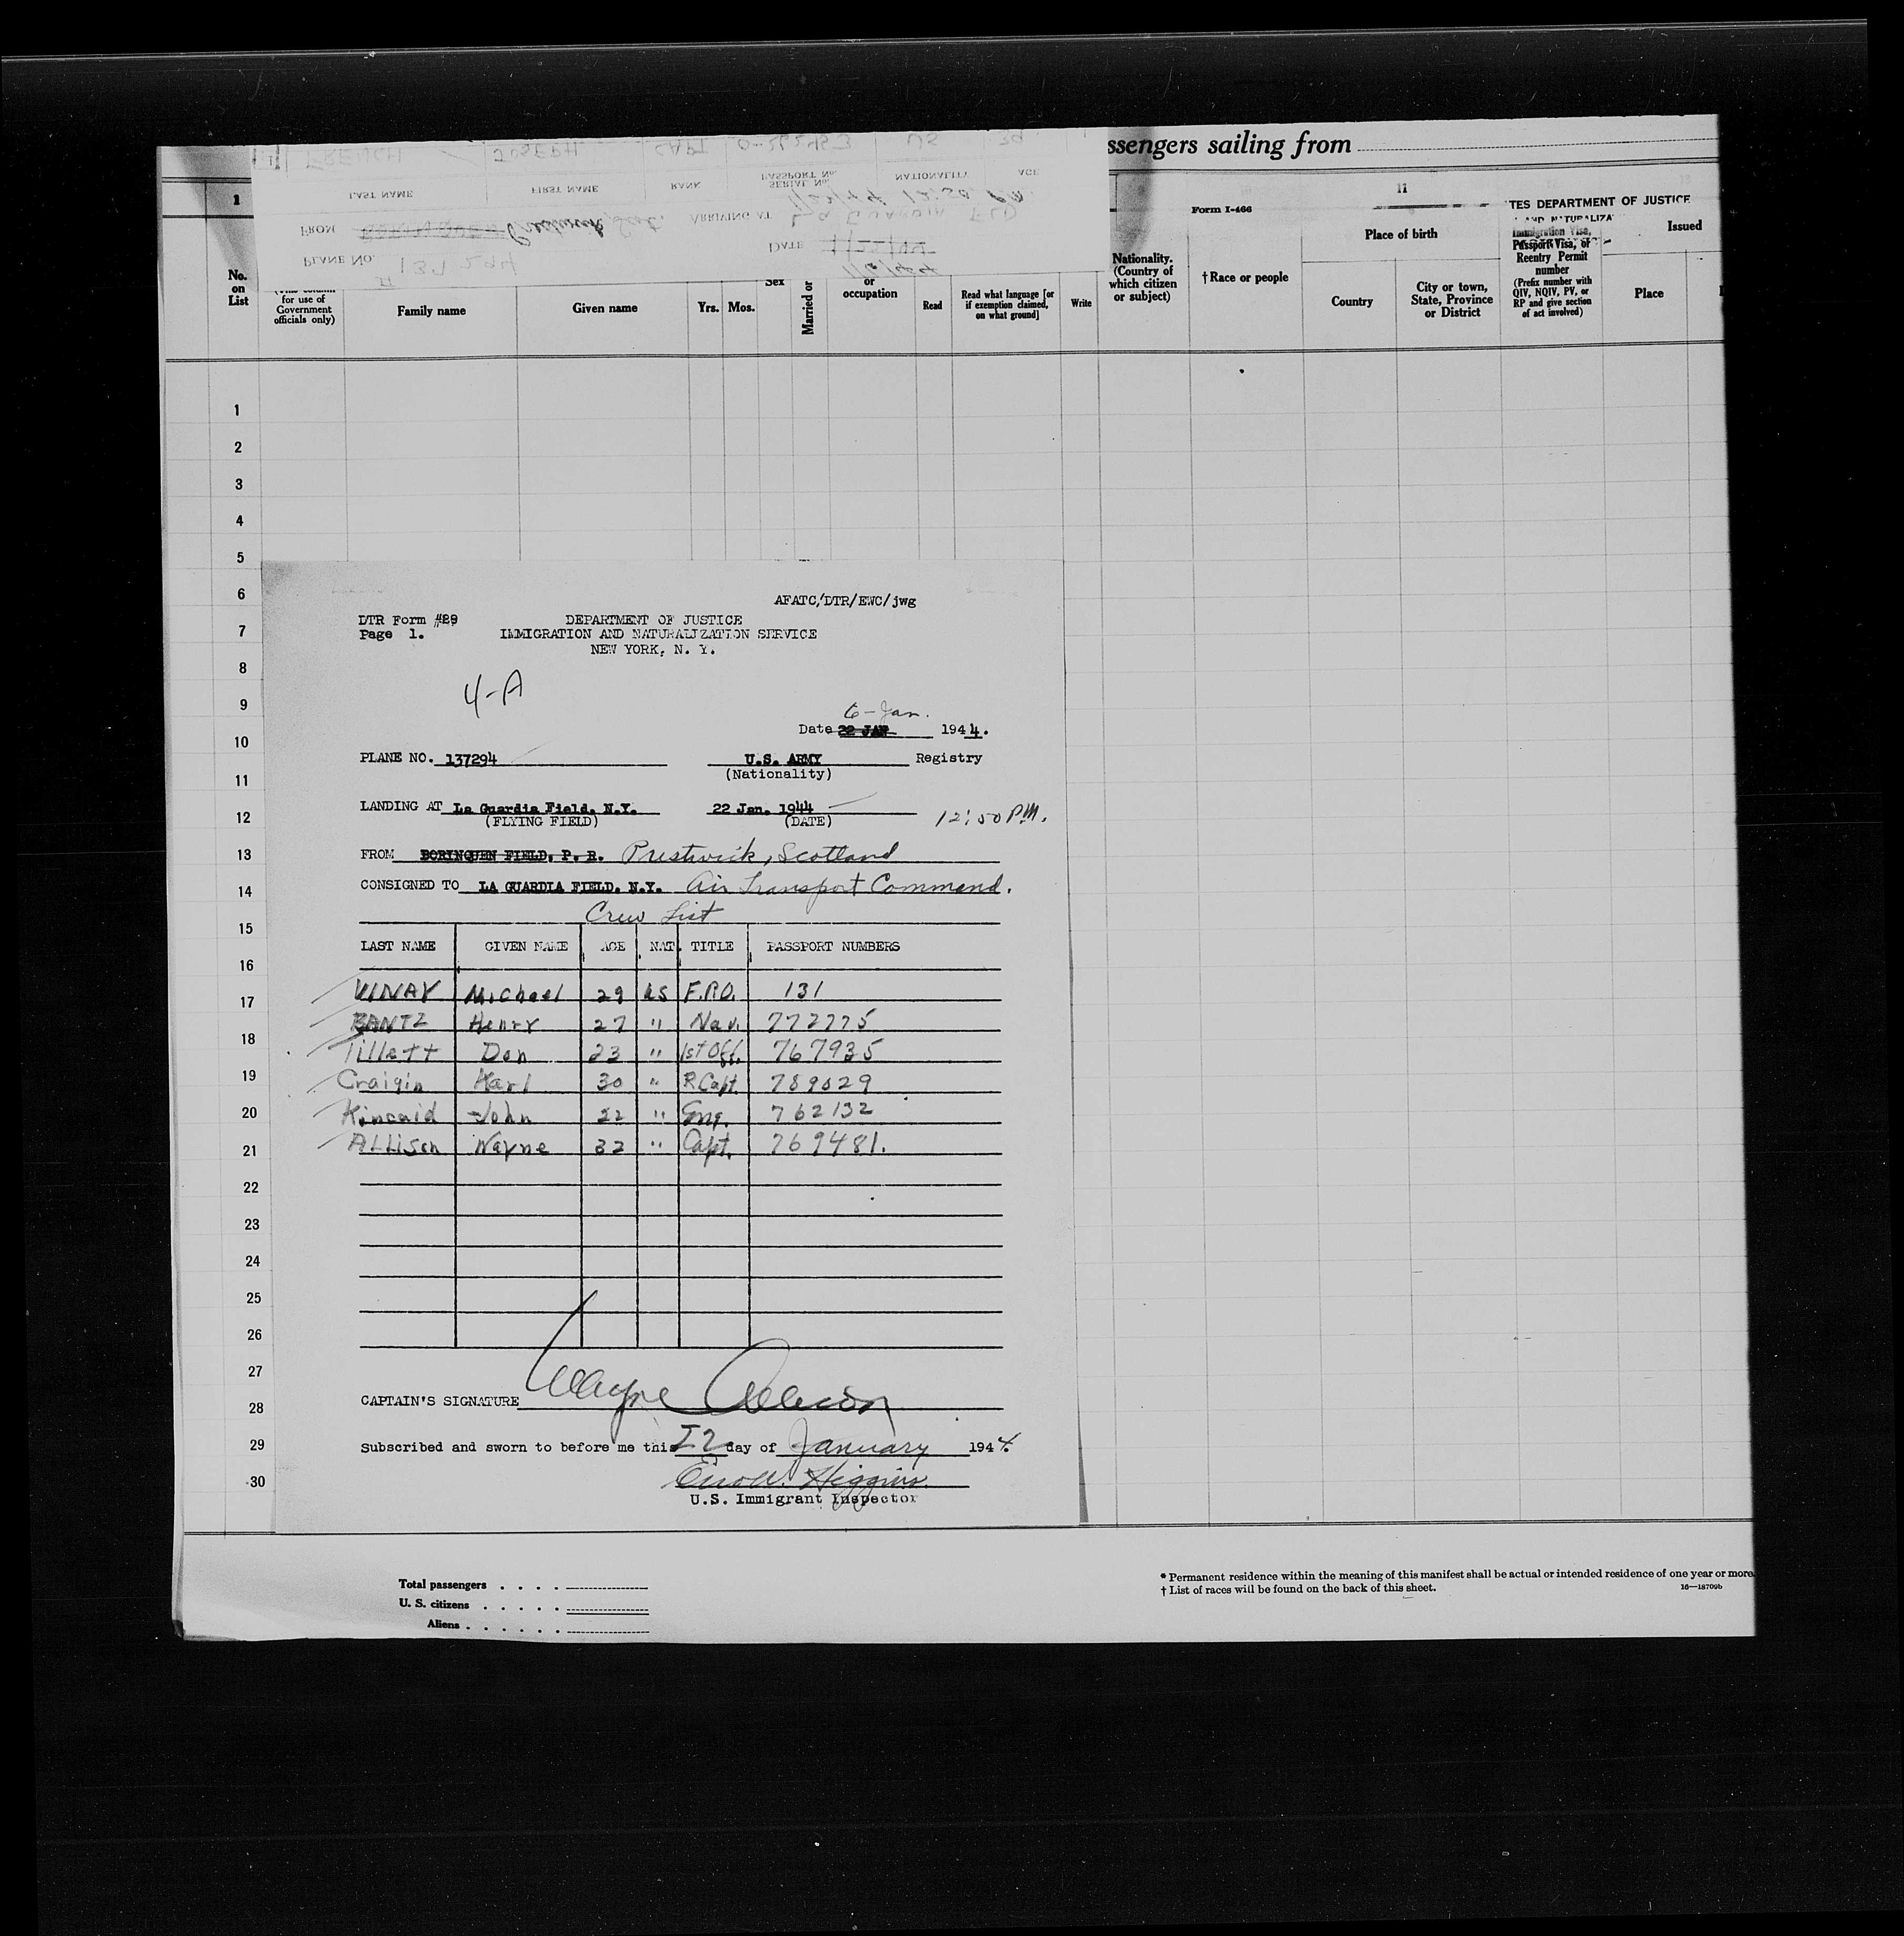 ssengers sailing from
FRENCH JOSEPH CAPT O-262453 US 39
LAST NAME FIRST NAME RANK PASSPORT No. SERIAL No. NATIONALITY AGE
FROM Prestwick, Scot. ARRIVING AT La Guardia Fld
PLANE No. 137294 DATE
1
11
Form I-466
TES DEPARTMENT OF JUSTICE
No.
on
List
for use of
Government
officials only)
Family name
Given name
Yrs.
Mos.
Sex
Married or
or
occupation
Read
Read what language [or
if exemption claimed,
on what ground]
Write
Nationality.
(Country of
which citizen
or subject)
†Race or people
Place of birth
Country
City or town,
State, Province
or District
Immigration Visa,
Passport Visa, or
Reentry Permit
number
(Prefix number with
QIV, NQIV, PV, or
RP and give section
of act involved)
Issued
Place
1
2
3
4
5
6
7
8
9
10
11
12
13
14
15
16
17
18
19
20
21
22
23
24
25
26
27
28
29
30
AFATC/DTR/EWC/jwg
DTR Form #29 DEPARTMENT OF JUSTICE
Page 1. IMMIGRATION AND NATURALIZATION SERVICE
NEW YORK, N. Y.
4-A
6-Jan.
Date 22 JAN 1944.
PLANE NO. 137294 U.S. ARMY Registry
(Nationality)
LANDING AT La Guardia Field, N.Y. 22 Jan. 1944 12:50 PM.
(FLYING FIELD) (DATE)
FROM BORINQUEN FIELD, P. R. Prestwick, Scotland
CONSIGNED TO LA GUARDIA FIELD, N.Y. Air Transport Command.
Crew List
LAST NAME GIVEN NAME AGE NAT. TITLE PASSPORT NUMBERS
VINAY Michael 29 US F.R.O. 131
BANTZ Henry 27 " Nav. 772775
Tillett Don 23 " 1st Off. 767935
Craigin Karl 30 " R.Capt. 789029
Kincaid John 22 " Eng. 762132
ALLison Wayne 32 " Capt. 769481.
CAPTAIN'S SIGNATURE Wayne Allison
Subscribed and sworn to before me this 22 day of January 1944.
Higgins
U.S. Immigrant Inspector
Total passengers
U. S. citizens
Aliens
* Permanent residence within the meaning of this manifest shall be actual or intended residence of one year or more.
† List of races will be found on the back of this sheet.
16—18709b